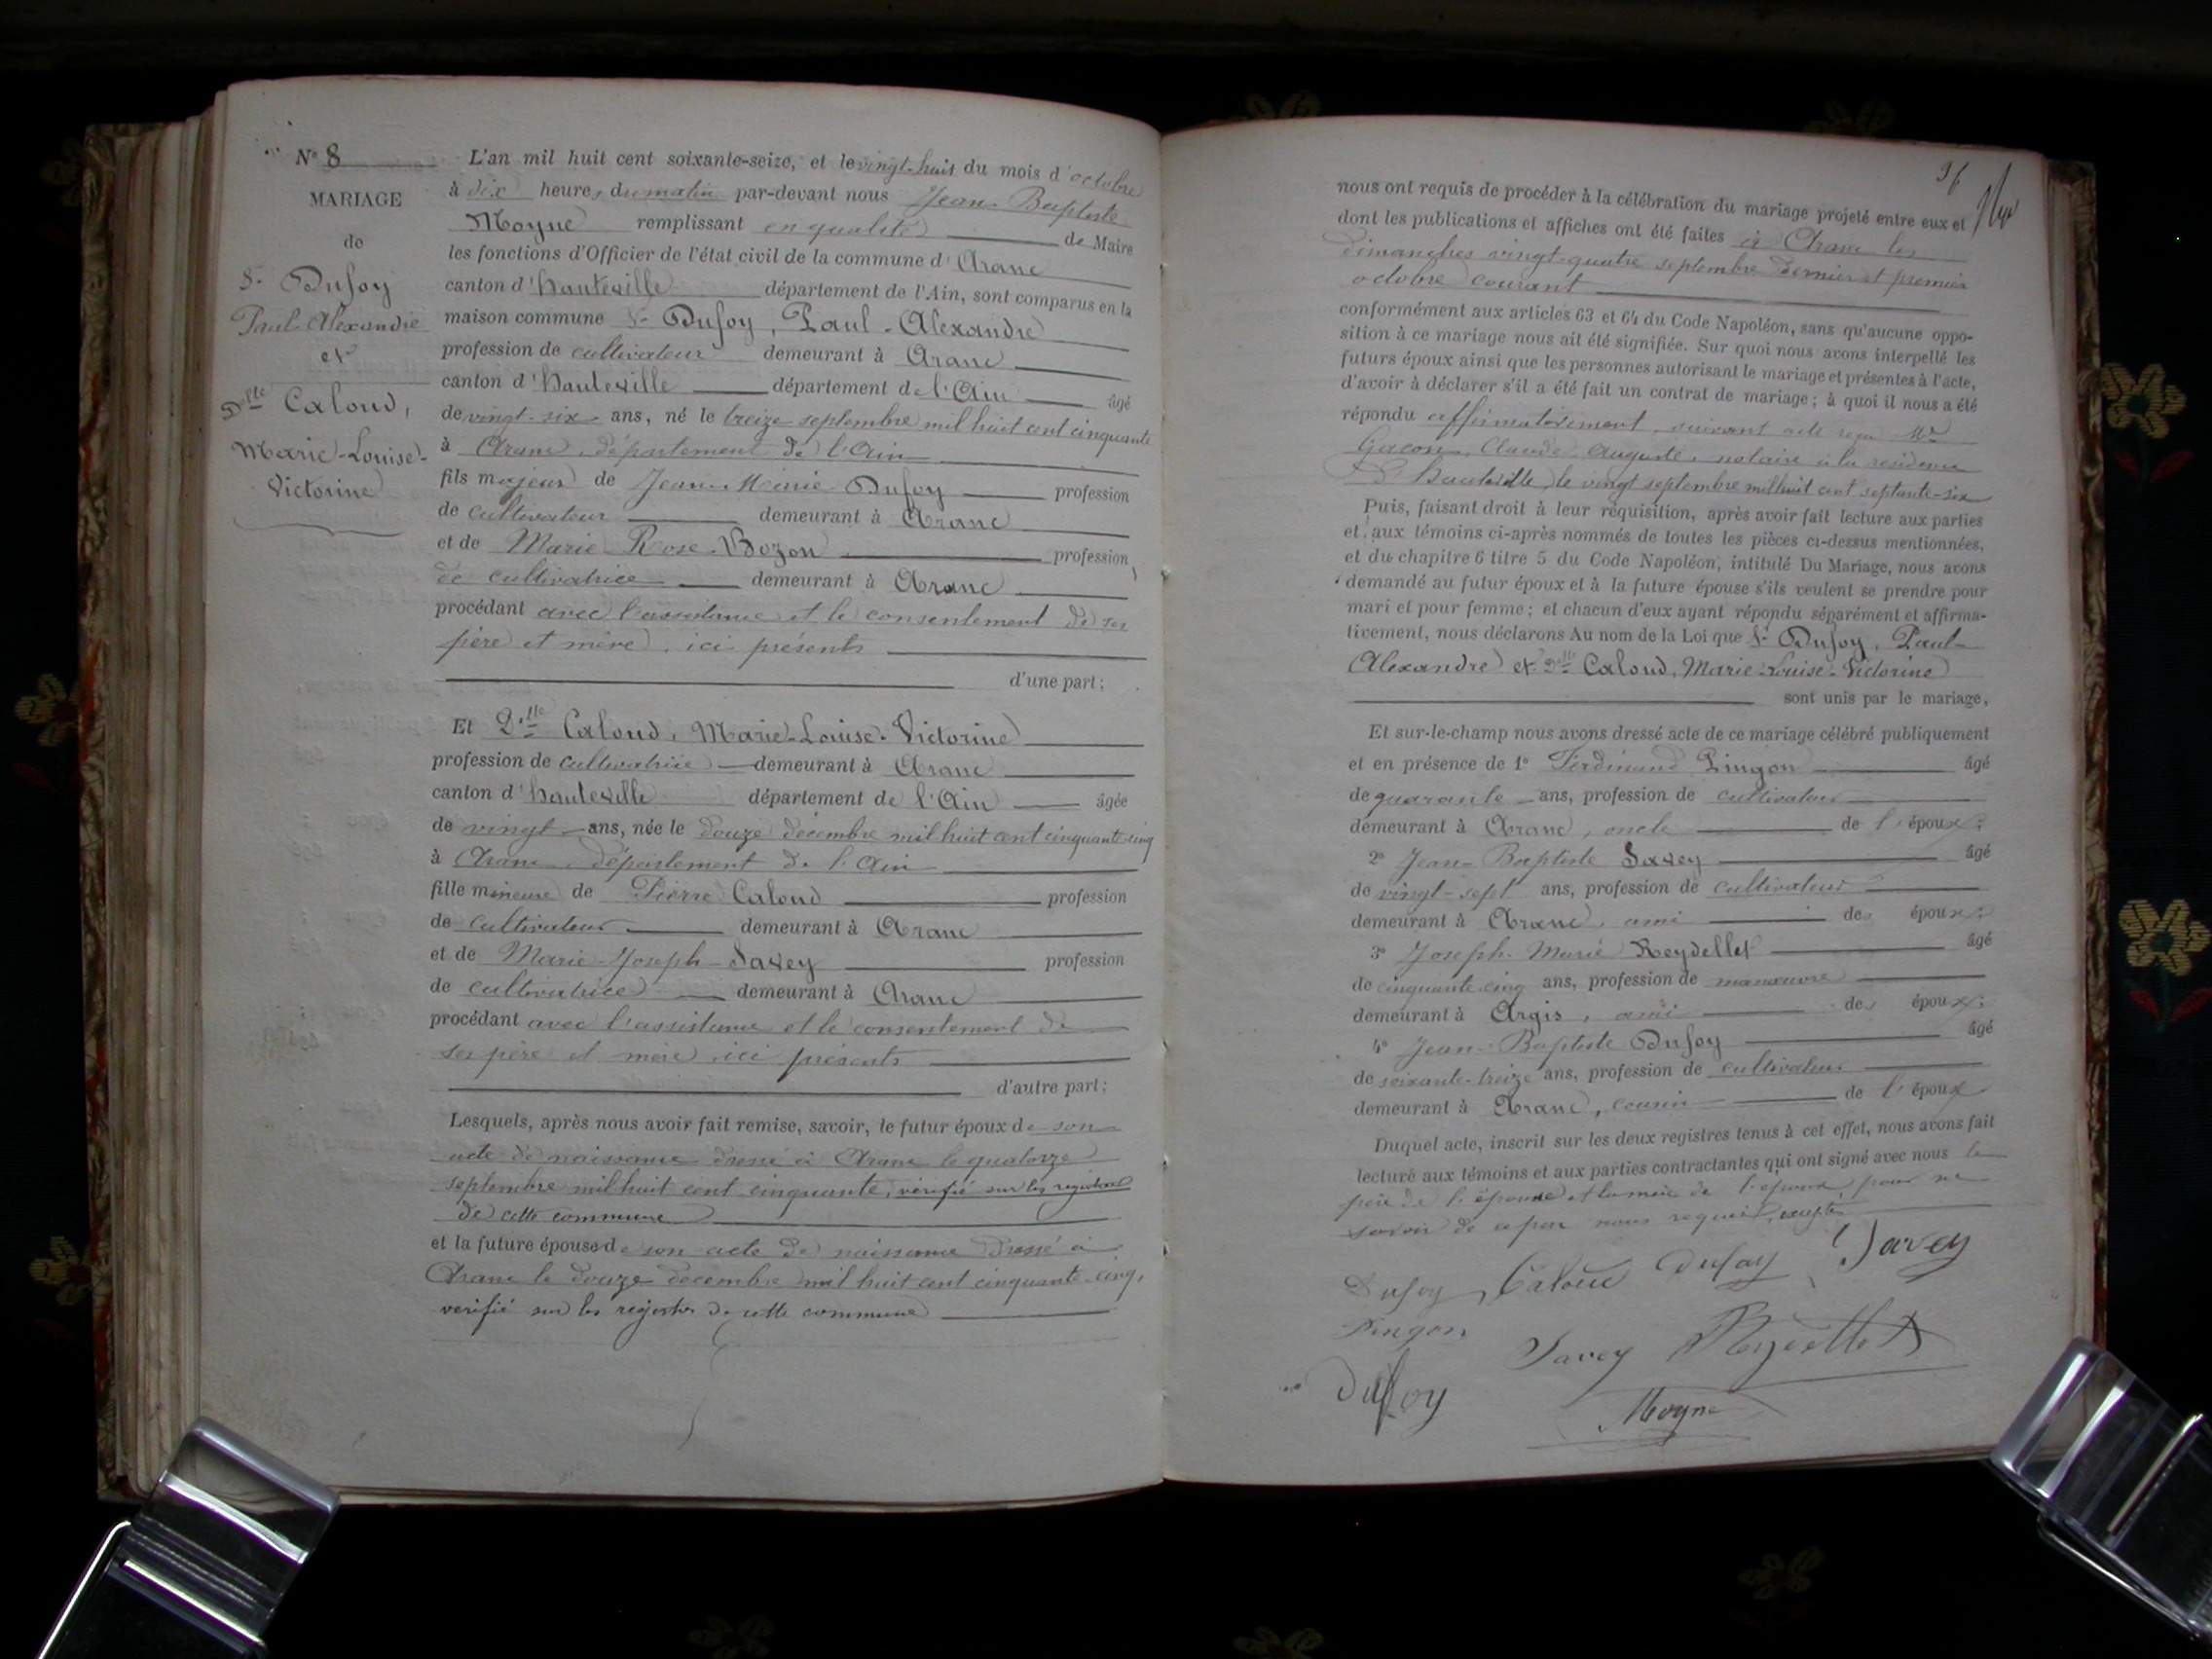 N° 8
MARIAGE
de
S.r Dufoy
Paul-Alexandre
et
D.elle Caloud,
Marie-Louise-
Victorine
L'an mil huit cent soixante-seize, et le vingt-huit du mois d'octobre
à dix heures du matin par-devant nous Jean-Baptiste
Moyne remplissant en qualité de Maire
les fonctions d'Officier de l'état civil de la commune d'Aranc
canton d'hauteville département de l'Ain, sont comparus en la
maison commune S.r Dufoy, Paul-Alexandre
profession de cultivateur demeurant à Aranc
canton d'hauteville département de l'Ain âgé
de vingt-six ans, né le treize septembre mil huit cent cinquante
à Aranc, département de l'Ain
fils majeur de Jean-Marie Dufoy profession
de cultivateur demeurant à Aranc
et de Marie Rose Bozon profession
de cultivatrice demeurant à Aranc
procédant avec l'assistance et le consentement de ses
père et mère, ici présents
d'une part;
Et D.elle Caloud, Marie-Louise-Victorine
profession de cultivatrice demeurant à Aranc
canton d'hauteville département de l'Ain âgée
de vingt ans, née le douze décembre mil huit cent cinquante-cinq
à Aranc, département de l'Ain
fille mineure de Pierre Caloud profession
de cultivateur demeurant à Aranc
et de Marie-Joseph-Savey profession
de cultivatrice demeurant à Aranc
procédant avec l'assistance et le consentement de
ses père et mère ici présents
d'autre part;
Lesquels, après nous avoir fait remise, savoir, le futur époux de son
acte de naissance dressé à Aranc le quatorze
septembre mil huit cent cinquante, vérifié sur les registres
de cette commune
et la future épouse de son acte de naissance dressé à
Aranc le douze décembre mil huit cent cinquante-cinq,
vérifié sur les registres de cette commune
96
nous ont requis de procéder à la célébration du mariage projeté entre eux et
dont les publications et affiches ont été faites à Aranc les
dimanches vingt-quatre septembre dernier et premier
octobre courant
conformément aux articles 63 et 64 du Code Napoléon, sans qu'aucune oppo-
sition à ce mariage nous ait été signifiée. Sur quoi nous avons interpellé les
futurs époux ainsi que les personnes autorisant le mariage et présentes à l'acte,
d'avoir à déclarer s'il a été fait un contrat de mariage; à quoi il nous a été
répondu affirmativement, suivant acte reçu M.e
Gacon, Claude Auguste, notaire à la résidence
D'Hauteville, le vingt septembre mil huit cent septante-six
Puis, faisant droit à leur réquisition, après avoir fait lecture aux parties
et aux témoins ci-après nommés de toutes les pièces ci-dessus mentionnées,
et du chapitre 6 titre 5 du Code Napoléon, intitulé Du Mariage, nous avons
demandé au futur époux et à la future épouse s'ils veulent se prendre pour
mari et pour femme; et chacun d'eux ayant répondu séparément et affirma-
tivement, nous déclarons Au nom de la Loi que S.r Dufoy, Paul-
Alexandre et D.elle Caloud, Marie-Louise-Victorine
sont unis par le mariage,
Et sur-le-champ nous avons dressé acte de ce mariage célébré publiquement
et en présence de 1° Ferdinand Pingon âgé
de quarante ans, profession de cultivateur
demeurant à Aranc, oncle de l'époux;
2° Jean-Baptiste Savey âgé
de vingt-sept ans, profession de cultivateur
demeurant à Aranc, ami des époux;
3° Joseph-Marie Reydellet âgé
de cinquante cinq ans, profession de manœuvre
demeurant à Argis, ami des époux;
4° Jean-Baptiste Dufoy âgé
de soixante-treize ans, profession de cultivateur
demeurant à Aranc, cousin de l'époux
Duquel acte, inscrit sur les deux registres tenus à cet effet, nous avons fait
lecture aux témoins et aux parties contractantes qui ont signé avec nous le
père de l'épouse et la mère de l'époux pour ne
savoir de ce par nous requis, excepté
Dufoy Caloud Dufoy Savey
Pingon Savey Reydellet
Dufoy Moyne